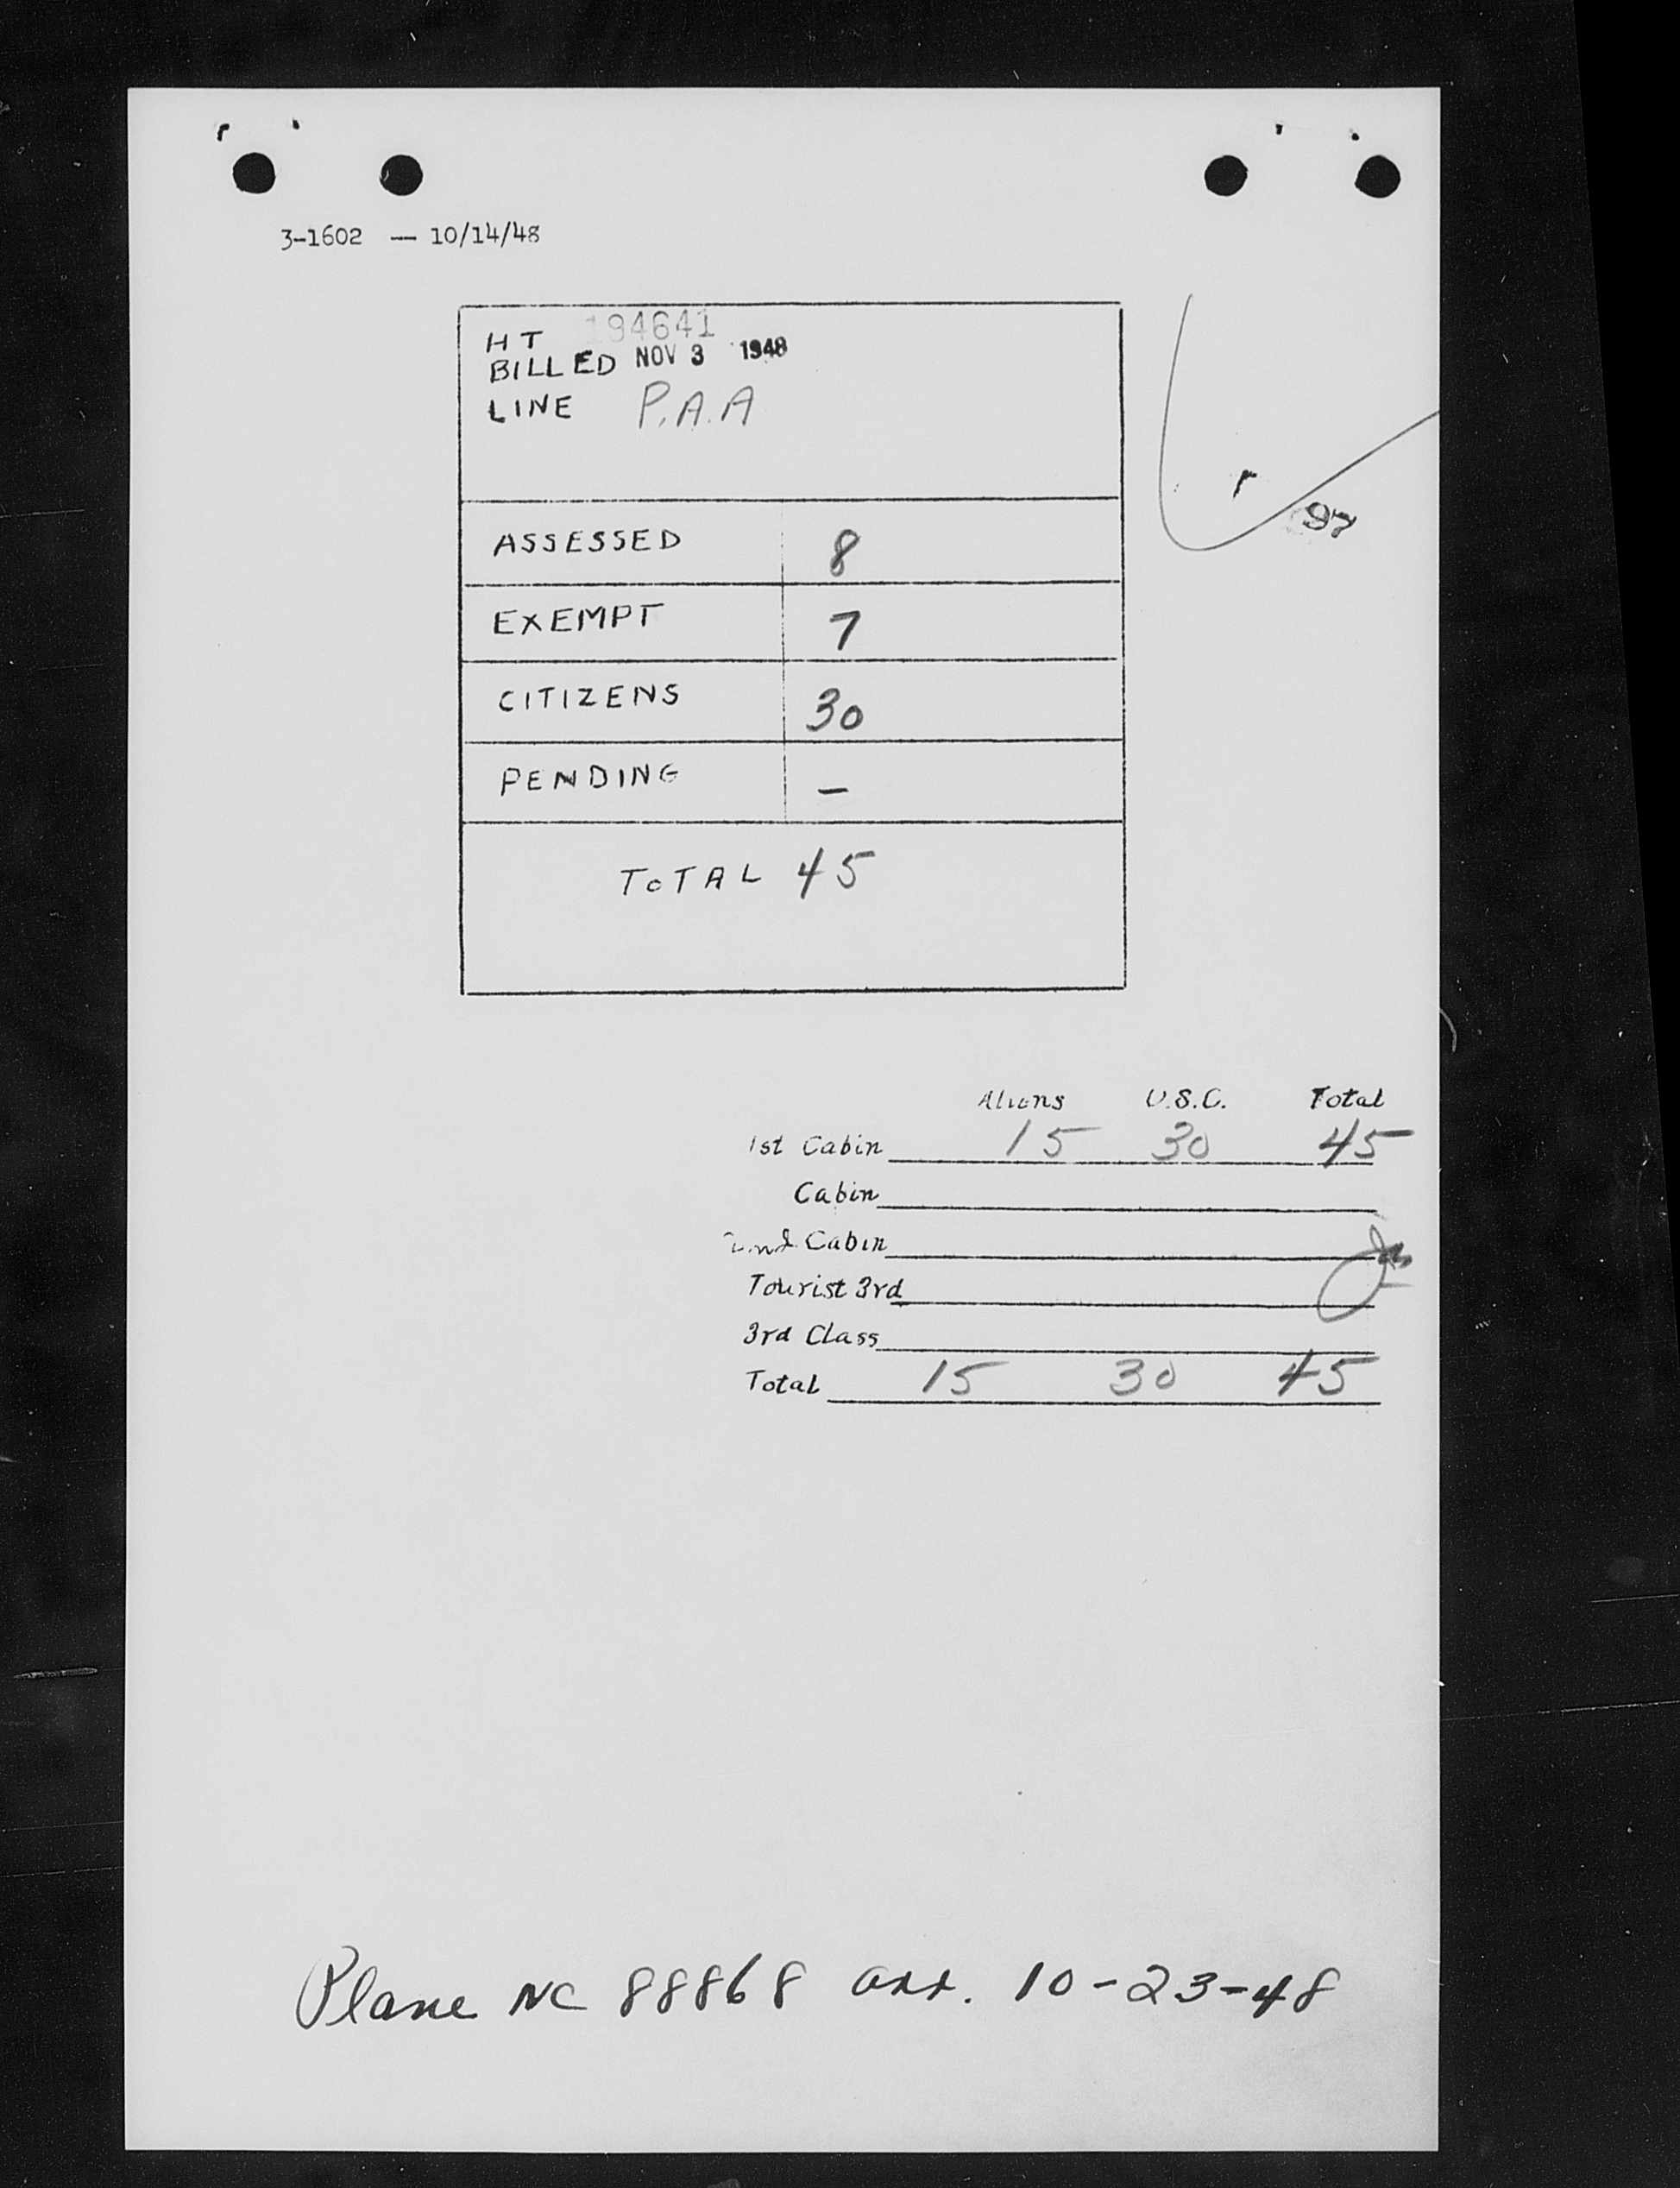 3-1602 — 10/14/48
HT 194641
BILLED NOV 3 1948
LINE P.A.A
97
ASSESSED 8
EXEMPT 7
CITIZENS 30
PENDING —
TOTAL 45
Aliens U.S.C. Total
1st Cabin 15 30 45
Cabin
2nd Cabin
Tourist 3rd
3rd Class
Total 15 30 45
Plane NC 88868 arr. 10-23-48